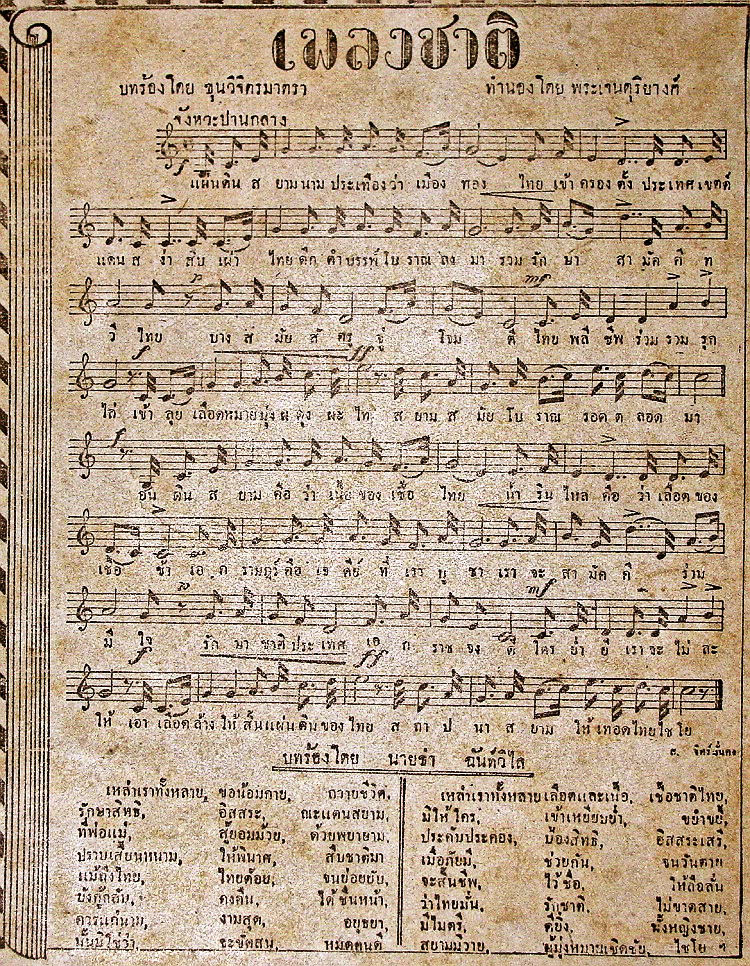 เพลงชาติ
บทร้องโดย ขุนวิจิตรมาตรา ทำนองโดย พระเจนดุริยางค์
จังหวะปานกลาง
แผ่นดิน ส ยาม นาม ประเทือง ว่า เมือง ทอง ไทย เข้า ครอง ตั้ง ประเทศ เขตต์
แดน ส ง่า สืบ เผ่า ไทย ดึก ดำ บรรพ์ โบ ราณ ลง มา รวม รัก ษา สา มัค คี ท
วี ไทย บาง ส มัย ศั ตรู จู่ โจม ตี ไทย พลี ชีพ ร่วม รวม รุก
ไล่ เข้า ลุย เลือด หมาย มุ่ง ผ ดุง ผะ ไท ส ยาม ส มัย โบ ราณ รอด ต ลอด มา
อัน ดิน ส ยาม คือ ว่า เนื้อ ของ เชื้อ ไทย น้ำ ริน ไหล คือ ว่า เลือด ของ
เชื้อ ข้า เอ ก ราษฎร์ คือ เจ ดีย์ ที่ เรา บู ชา เรา จะ สา มัค คี ร่วม
มี ใจ รัก ษา ชาติ ประ เทศ เอ ก ราช จง ดี ใคร ย่ำ ยี เรา จะ ไม่ ละ
ให้ เอา เลือด ล้าง ให้ สิ้น แผ่น ดิน ของ ไทย ส ถา ป นา ส ยาม ให้ เทอด ไทย ไช โย
บทร้องโดย นายฉ่ำ ฉันทวิไล
เหล่าเราทั้งหลาย, ขอน้อมกาย, ถวายชีวิต, เหล่าเราทั้งหลายเลือดและเนื้อ, เชื้อชาติไทย,
รักษาสิทธิ์, อิสสระ, ณะแดนสยาม, มิให้ใคร, เข้าเหยียบย่ำ, ขยำขยี้,
ที่พ่อแม่, สู้ยอมม้วย, ด้วยพยายาม, ประคับประคอง, ป้องสิทธิ์, อิสสระเสรี,
ปราบเสี้ยนหนาม, ให้พินาศ, สืบชาติมา เมื่อภัยมี, ช่วยกัน, จนวันตาย
แม้ถึงไทย, ไทยด้อย, จนย่อยยับ, จะสิ้นชีพ, ไว้ชื่อ, ให้ลือลั่น
ยังกู้กลับ, คงคืน, ได้ชื่นหน้า, ว่าไทยมั่น, รักชาติ, ไม่ขาดสาย,
ควรแก่นาม, งามสุด, อยุธยา, มีไมตรี, ดียิ่ง, ทั้งหญิงชาย,
นั้นมิใช่ว่า, จะขัดสน, หมดคนดี สยามมิวาย, ผู้มุ่งหมายเชิดชัย, ไชโย ฯ